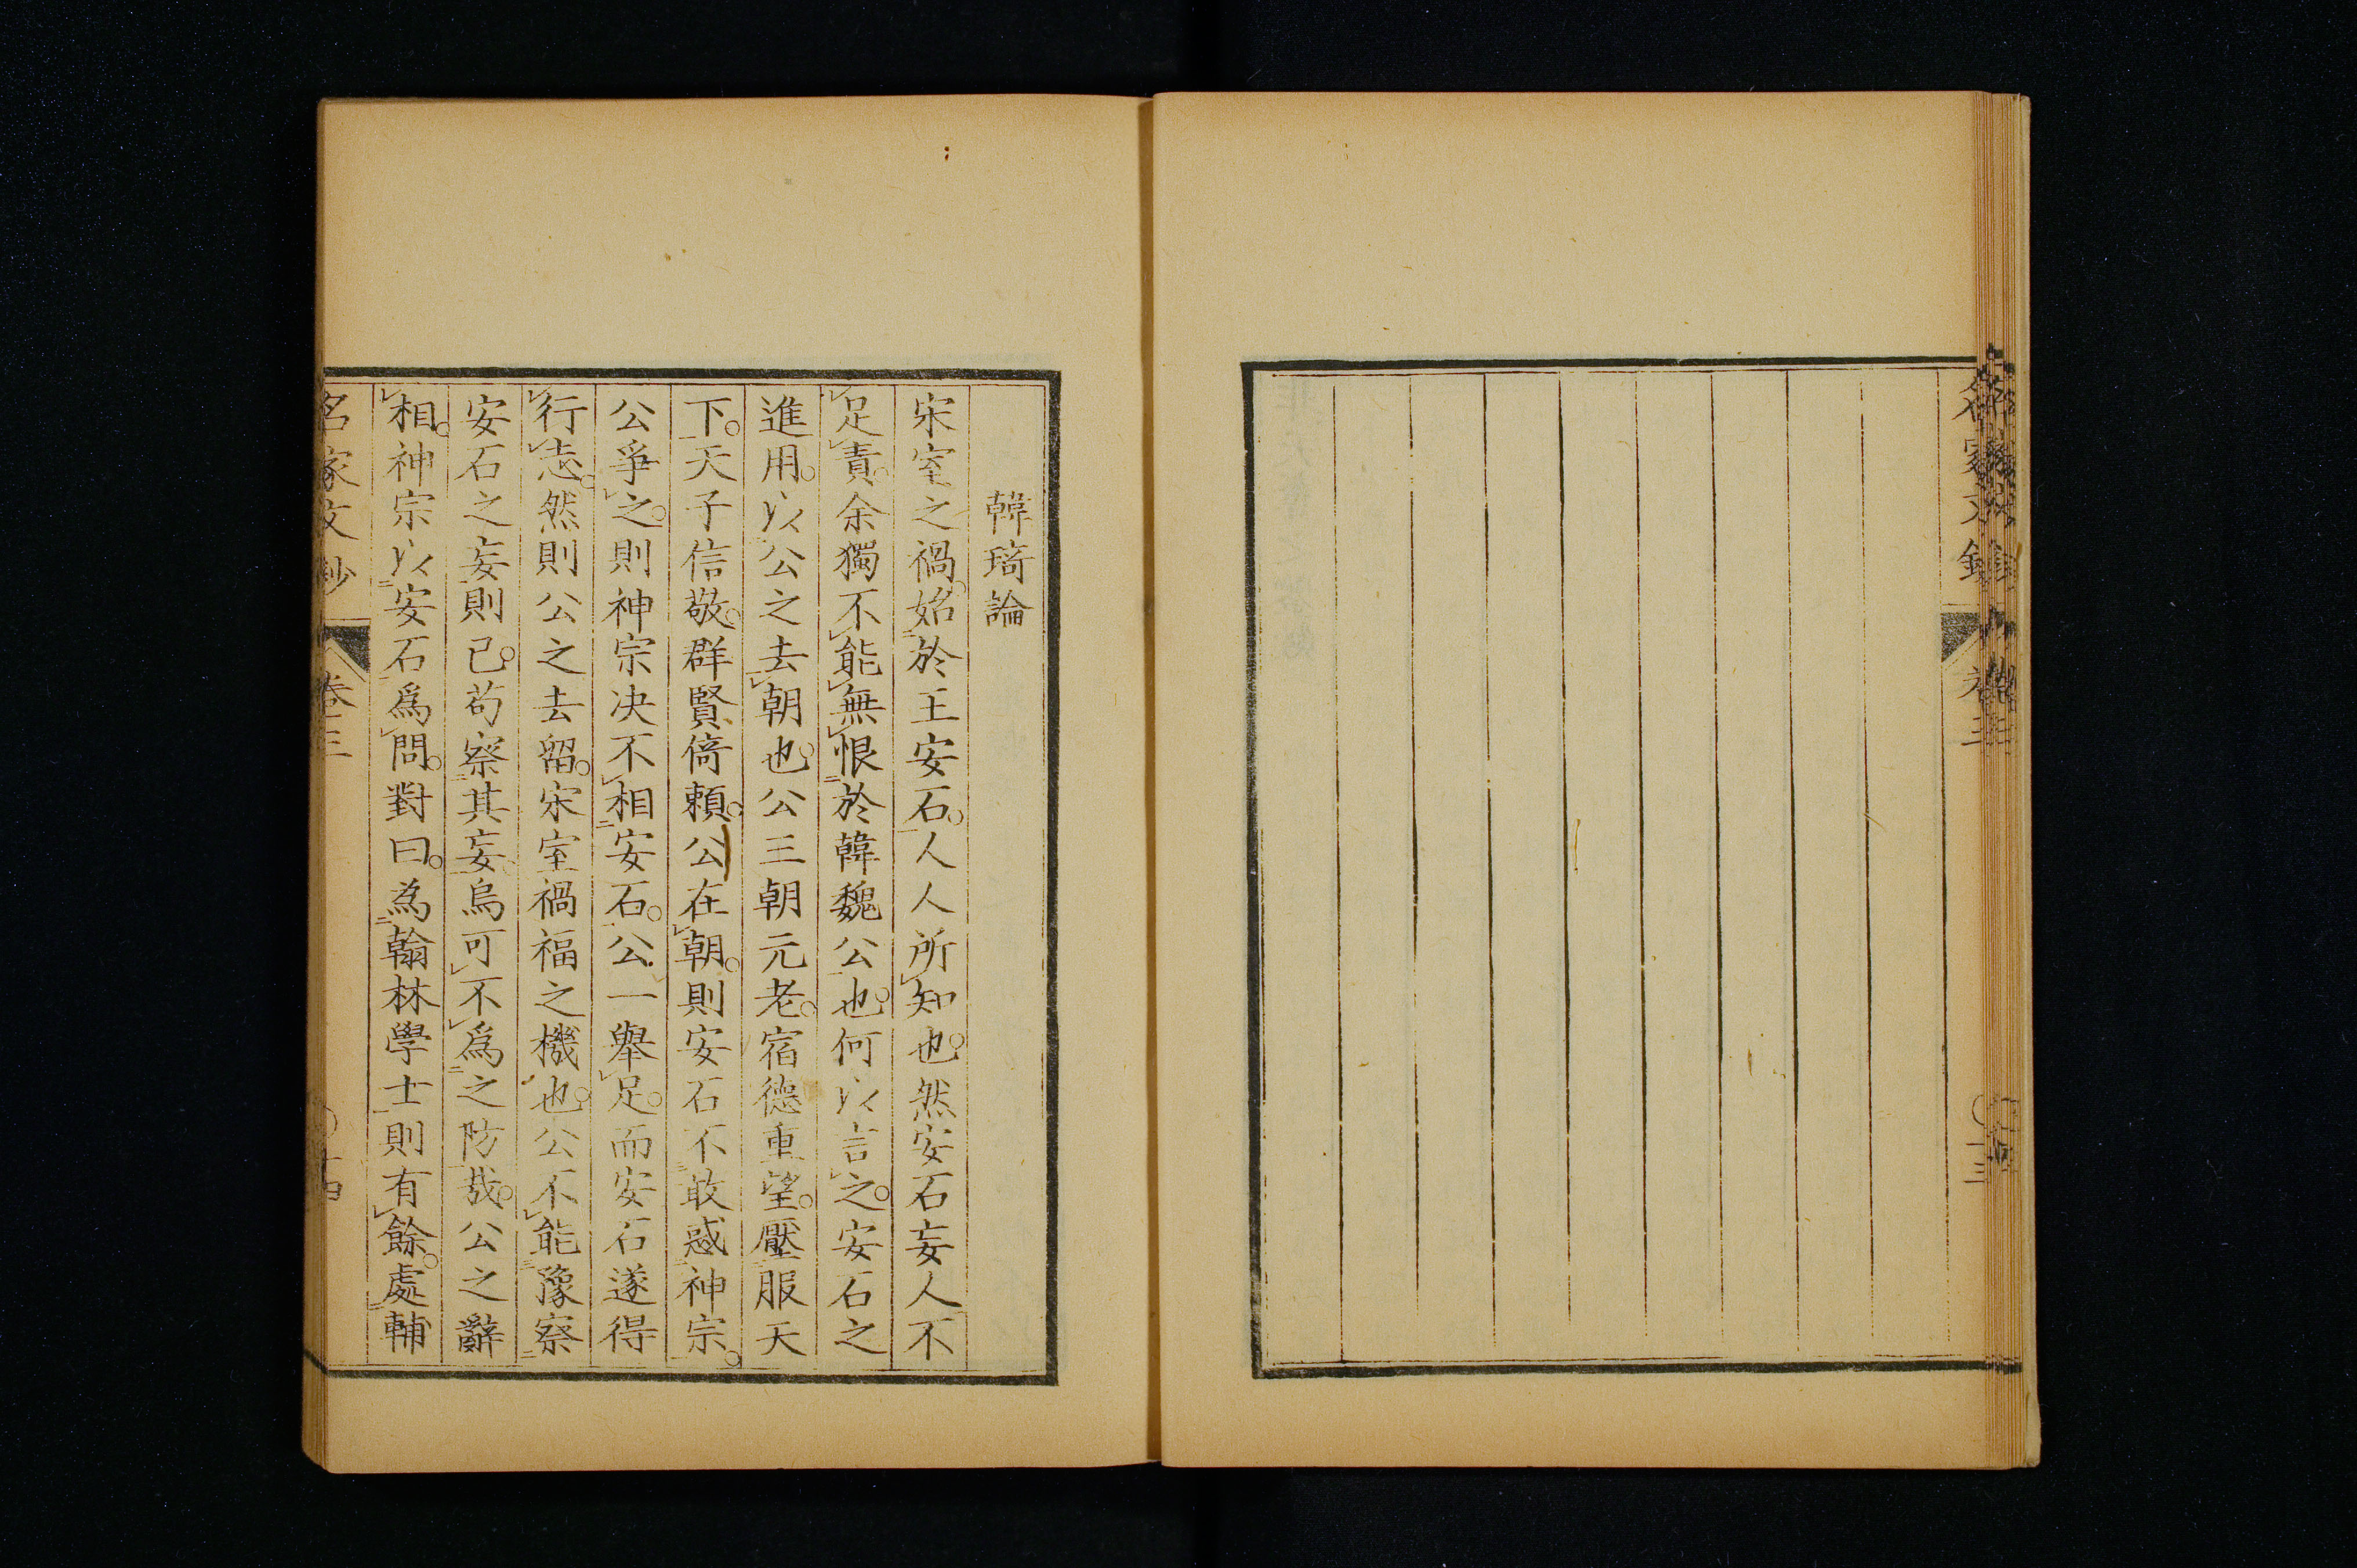 韓琦論
宋室之禍。始於王安石。人人所知也。然安石妄人不
足責。余獨不能無恨於韓魏公也。何以言之。安石之
進用。以公之去朝也。公三朝元老。宿德重望。壓服天
下。天子信敬。群賢倚賴。公在朝。則安石不敢惑神宗。
公爭之。則神宗决不相安石。公一舉足。而安石遂得
行志。然則公之去留。宋室禍福之機也。公不能豫察
安石之妄則已。苟察其妄。烏可不爲之防哉。公之辭
相。神宗以安石爲問。對曰。為翰林學士則有餘。處輔
名家文抄 卷三 十四